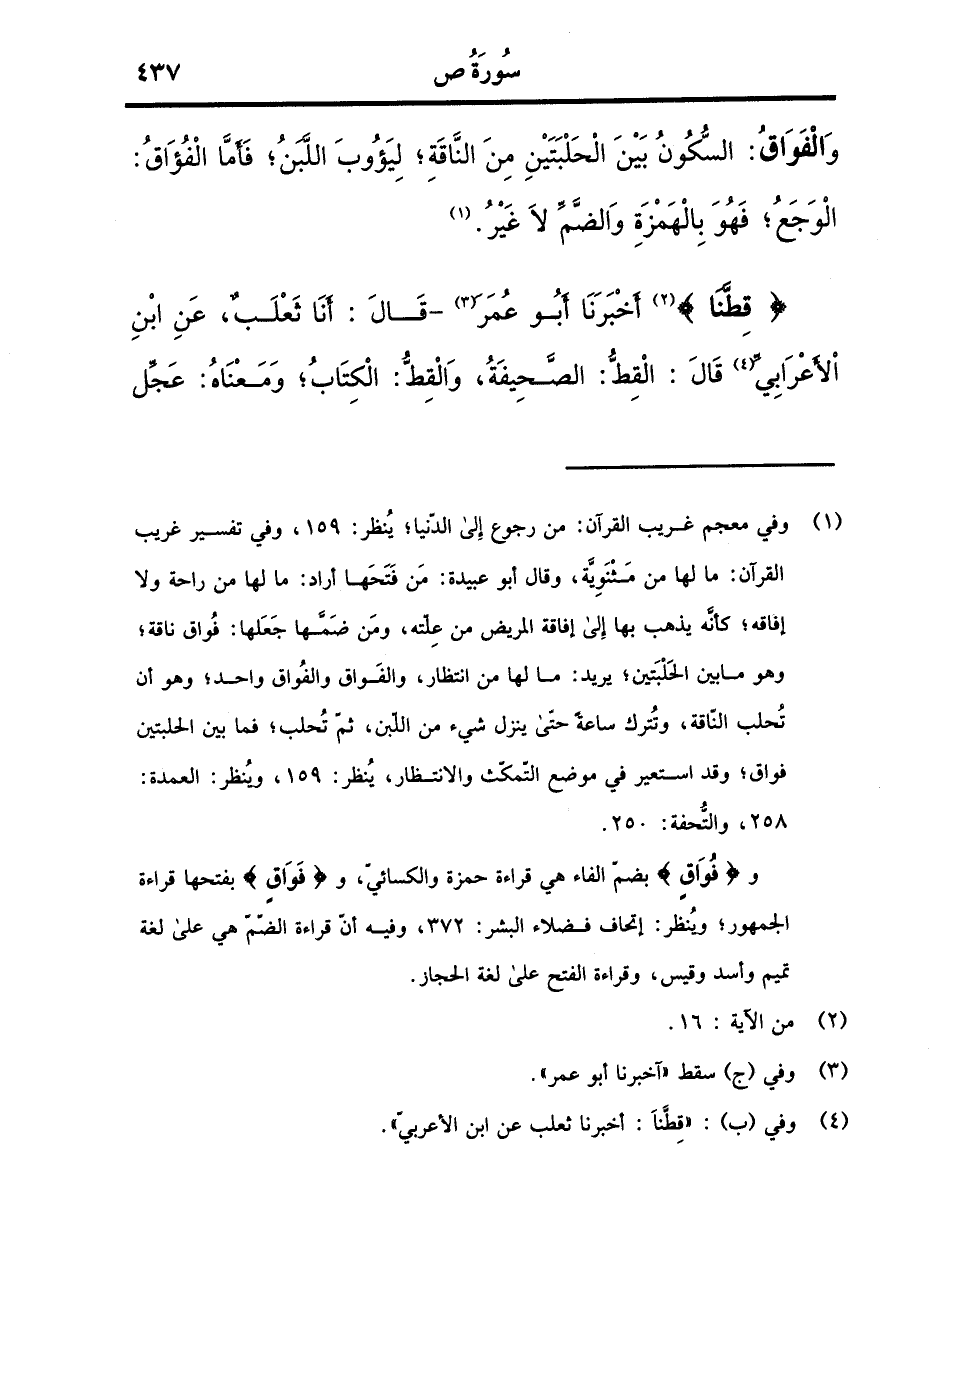 سُورَةُ ص ٤٣٧
وَالْفَوَاقُ: السُّكُونُ بَيْنَ الْحَلْبَتَيْنِ مِنَ النَّاقَةِ؛ لِيَؤُوبَ اللَّبَنُ؛ فَأَمَّا الْفُؤَاقُ:
الْوَجَعُ؛ فَهُوَ بِالْهَمْزَةِ وَالضَّمِّ لاَ غَيْرُ.(١)
﴿ قِطَّنَا ﴾(٢) أَخْبَرَنَا أَبُو عُمَرَ(٣) -قَالَ : أَنَا ثَعْلَبٌ، عَنِ ابْنِ
اْلأَعْرَابِيِّ(٤) قَالَ : الْقِطُّ: الصَّحِيفَةُ، وَالْقِطُّ: الْكِتَابُ؛ وَمَعْنَاهُ: عَجِّل
(١) وفي معجم غريب القرآن: من رجوع إلىٰ الدّنيا؛ يُنظر: ١٥٩، وفي تفسير غريب
القرآن: ما لها من مَثْنَوِيَّة، وقال أبو عبيدة: مَن فَتَحَها أراد: ما لها من راحة ولا
إفاقه؛ كأنَّه يذهب بها إلىٰ إفاقة المريض من علّته، ومَن ضَمَّها جَعَلها: فُواق ناقة؛
وهو مابين الحَلْبَتين؛ يريد: ما لها من انتظار، والفَواق والفُواق واحد؛ وهو أن
تُحلب النّاقة، وتُترك ساعةً حتّىٰ ينزل شيء من اللّبن، ثمّ تُحلب؛ فما بين الحلبتين
فواق؛ وقد استعير في موضع التّمكّث والانتظار، يُنظر: ١٥٩، ويُنظر: العمدة:
٢٥٨، والتُّحفة: ٢٥٠.
و ﴿ فُوَاقٍ ﴾ بضمّ الفاء هي قراءة حمزة والكسائيّ، و ﴿ فَوَاقٍ ﴾ بفتحها قراءة
الجمهور؛ ويُنظر: إتحاف فضلاء البشر: ٣٧٢، وفيه أنّ قراءة الضّمّ هي علىٰ لغة
تميم وأسد وقيس، وقراءة الفتح علىٰ لغة الحجاز.
(٢) من الآية : ١٦.
(٣) وفي (ج) سقط «آخبرنا أبو عمر».
(٤) وفي (ب) : «قِطَّناَ : أخبرنا ثعلب عن ابن الأعربيّ».